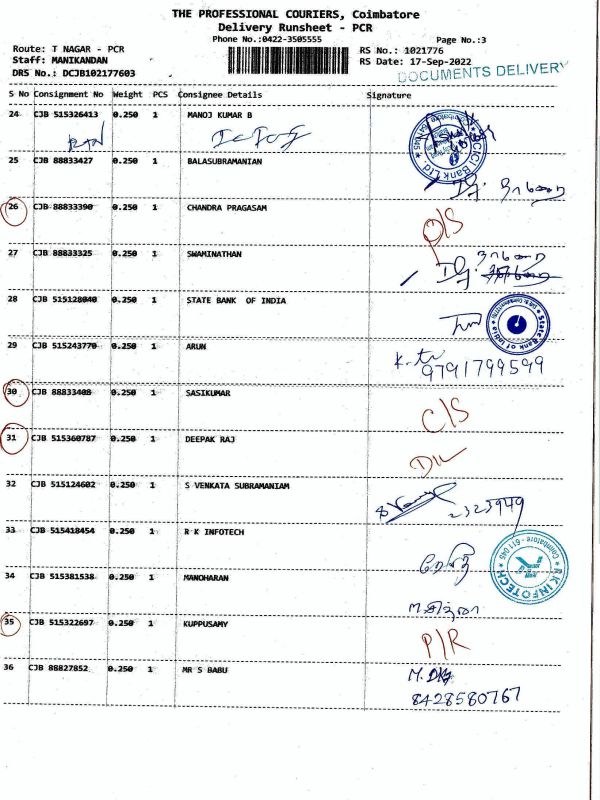 THE PROFESSIONAL COURIERS, Coimbatore
Delivery Runsheet - PCR
Phone No.:0422-3505555
Page No.:3
Route: T NAGAR - PCR
RS No.: 1021776
Staff: MANIKANDAN
RS Date: 17-Sep-2022
DRS No.: DCJB102177603
DOCUMENTS DELIVERY
S No Consignment No Weight PCS Consignee Details Signature
24 CJB 515326413 0.250 1 MANOJ KUMAR B
ICICI Bank Ltd.
25 CJB 88833427 0.250 1 BALASUBRAMANIAN
26 CJB 88833390 0.250 1 CHANDRA PRAGASAM
O/S
27 CJB 88833325 0.250 1 SWAMINATHAN
28 CJB 515128040 0.250 1 STATE BANK OF INDIA
State Bank of India
29 CJB 515243770 0.250 1 ARUN
9791799599
30 CJB 88833408 0.250 1 SASIKUMAR
C/S
31 CJB 515360787 0.250 1 DEEPAK RAJ
32 CJB 515124602 0.250 1 S VENKATA SUBRAMANIAM
2323949
33 CJB 515418454 0.250 1 R K INFOTECH
R K INFOTECH
Coimbatore - 611 045
34 CJB 515381538 0.250 1 MANOHARAN
35 CJB 515322697 0.250 1 KUPPUSAMY
P/R
36 CJB 88827852 0.250 1 MR S BABU
8428580767